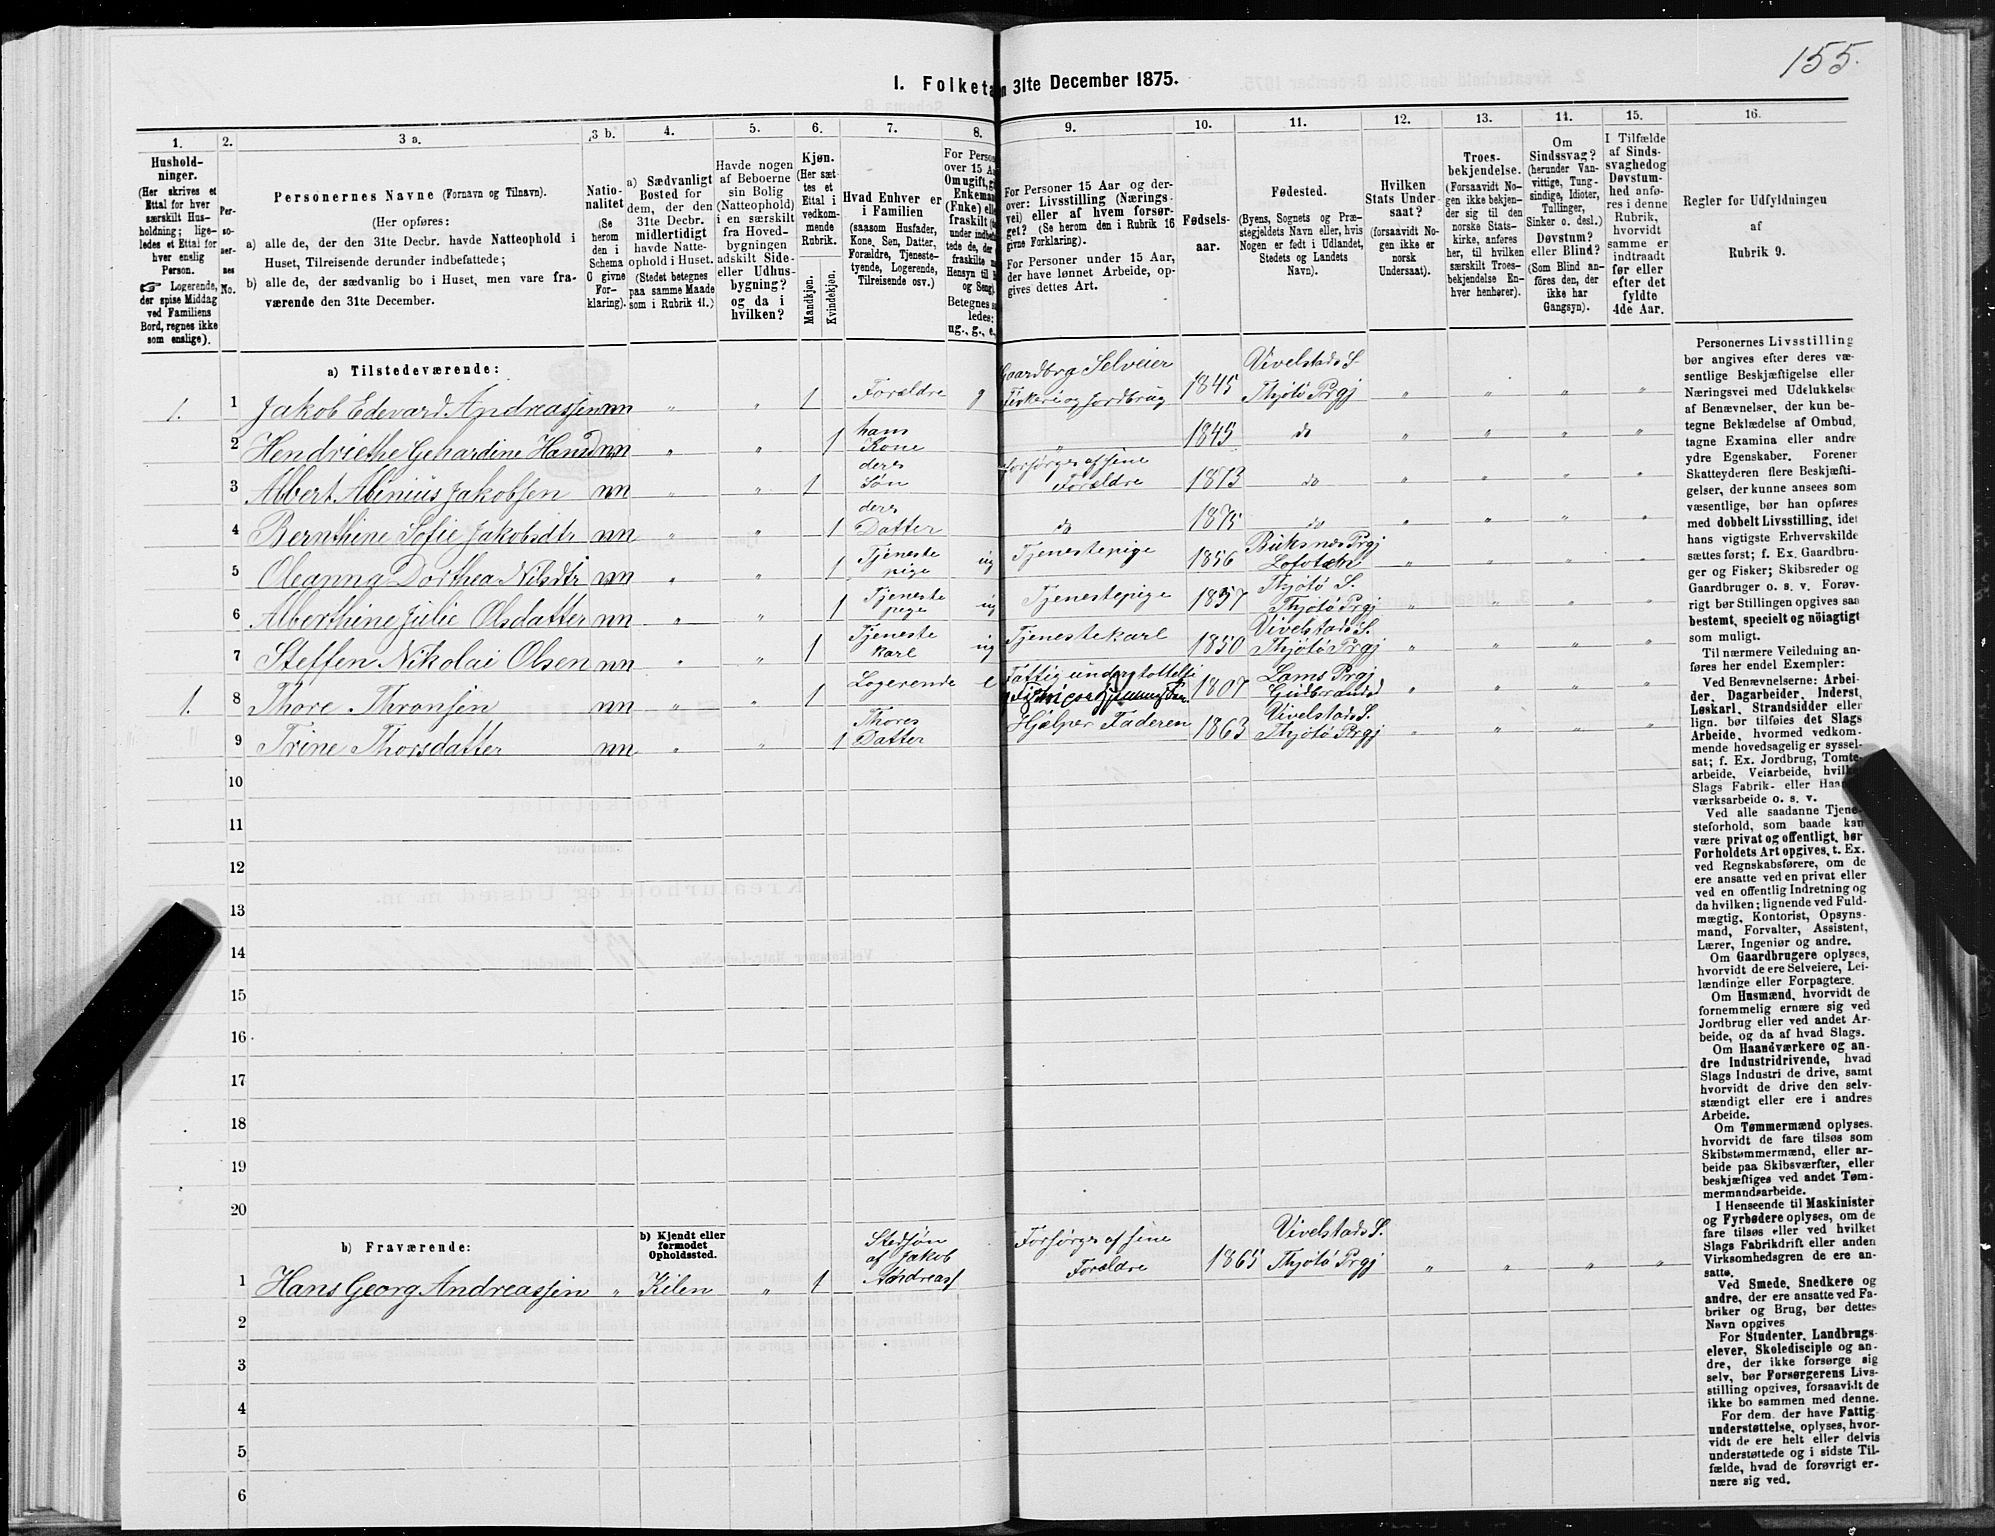 155.
I. Folketa n 31te December 1875.
1. 2. 3 a. 3 b. 4. 5. 6. 7. 8. 9. 10. 11. 12. 13. 14. 15. 16.
Hushold-
ninger.
(Her skrives et
Ettal for hver
særskilt Hus-
holdning; lige-
ledes et Ettal for
hver enslig
Person.
☞ Logerende,
der spise Middag
ved Familiens
Bord, regnes ikke
som enslige).
Per-
so-
ner-
nes
No.
Personernes Navne (Fornavn og Tilnavn).
(Her opføres:
a) alle de, der den 31te Decbr. havde Natteophold i
Huset, Tilreisende derunder indbefattede;
b) alle de, der sædvanlig bo i Huset, men vare fra-
værende den 31te December.
Natio-
nalitet
(Se
herom
den i
Schema
C givne
For-
klaring).
a) Sædvanligt
Bosted for
dem, der den
31te Decbr.
midlertidigt
havde Natte-
ophold i Huset.
(Stedet betegnes
paa samme Maade
som i Rubrik 11.)
Havde nogen
af Beboerne
sin Bolig
(Natteophold)
i en særskilt
fra Hoved-
bygningen
adskilt Side-
eller Udhus-
bygning?
og da i
hvilken?
Kjøn.
(Her sæt-
tes et
Ettal i
vedkom-
mende
Rubrik.
Mandkjøn.
Kvindekjøn.
Hvad Enhver er
i Familien
(saasom Husfader,
Kone, Søn, Datter,
Forældre, Tjeneste-
tyende, Logerende,
Tilreisende osv.)
For Person
over 15 Aa
Om ugift, gi
Enkeman
(Enke) elle
fraskilt (
under indbe
tede de, de
fraskilte m
Hensyn til
og Seng).
Betegnes s
ledes:
ug., g., e.,
For Personer 15 Aar og der-
over: Livsstilling (Nærings-
vei) eller af hvem forsør-
get? (Se herom den i Rubrik 16
givne Forklaring).
For Personer under 15 Aar,
der have lønnet Arbeide, op-
gives dettes Art.
Fødsels-
aar.
Fødested.
(Byens, Sognets og Præ-
stegjeldets Navn eller, hvis
Nogen er født i Udlandet,
Stedets og Landets
Navn).
Hvilken
Stats Under-
saat?
(forsaavidt No-
gen ikke er
norsk
Undersaat).
Troes-
bekjendelse.
(Forsaavidt No-
gen ikke bekjen-
der sig til den
norske Stats-
kirke, anføres
her, til hvilken
særskilt Troes-
bekjendelse En-
hver henhører).
Om
Sindssvag?
(herunder Van-
vittige, Tung-
sindige, Idioter,
Tullinger,
Sinker o. desl.)
Døvstum?
eller Blind?
(Som Blind an-
føres den, der
ikke har
Gangsyn).
I Tilfælde
af Sinds-
svaghed og
Døvstum-
hed anfø-
res i denne
Rubrik,
hvorvidt
samme er
indtraadt
før eller
efter det
fyldte
4de Aar.
Regler for Udfyldningen
af
Rubrik 9.
a) Tilstedeværende:
1. 1 Jakob Edevard Andreassen nn „ „ 1 Forældre g Gaardbrg Selveier Fiskeri og Jordbrug 1845 Vivelstads S. Thjøtø Prgj „ „ „ „
2 Hendriethe Gehardine Hansd nn „ „ 1 hans Kone „ 1845 do „ „ „ „
3 Albert Albinius Jakobsen nn „ „ 1 deres Søn Forsørges af sine Forældre 1873 do „ „ „ „
4 Bernthine Sofie Jakobsdtr nn „ „ 1 deres Datter do 1875 do „ „ „ „
5 Oleanna Dorthea Nilsdtr nn „ „ 1 Tjeneste pige ug Tjenestepige 1856 Buksnæs Prgj Lofoten „ „ „ „
6 Alberthine Julie Olsdatter nn „ „ 1 Tjeneste pige ug Tjenestepige 1857 Thjøtø S. Thjøtø Prgj „ „ „ „
7 Steffen Nikolai Olsen nn „ „ 1 Tjeneste karl ug Tjenestekarl 1850 Vivelstads S. Thjøtø Prgj „ „ „ „
1. 8 Thore Thronsen nn „ „ 1 Logerende e Fattig understottelse 1807 Loms Prgj Gudbrandsd „ „ „ „
9 Trine Thorsdatter nn „ „ 1 Thores Datter Hjælper Faderen 1863 Vivelstads S. Thjøtø Prgj „ „ „ „
10
11
12
13
14
15
16
17
18
19
20
b) Fraværende:
b) Kjendt eller
formodet
Opholdssted.
1 Hans Georg Andreassen „ Kilen „ 1 Stedsøn af Jakob Andreass Forsørges af sine Forældre 1865 Vivelstads S. Thjøtø Prgj „ „ „ „
2
3
4
5
6
Personernes Livsstilling
bør angives efter deres væ-
sentlige Beskjæftigelse eller
Næringsvei med Udelukkelse
af Benævnelser, der kun be-
tegne Beklædelse af Ombud,
tagne Examina eller andre
ydre Egenskaber. Forener
Skatteyderen flere Beskjæfti-
gelser, der kunne ansees som
væsentlige, bør han opføres
med dobbelt Livsstilling, idet
hans vigtigste Erhvervskilde
sættes først; f. Ex. Gaardbru-
ger og Fisker; Skibsreder og
Gaardbruger o. s. v. Forøv-
rigt bør Stillingen opgives saa
bestemt, specielt og nöiagtigt
som muligt.
Til nærmere Veiledning an-
føres her endel Exempler:
Ved Benævnelserne: Arbei-
der, Dagarbeider, Inderst,
Løskarl, Strandsidder eller
lign. bør tilføies det Slags
Arbeide, hvormed vedkom-
mende hovedsagelig er syssel-
sat; f. Ex. Jordbrug, Tomte-
arbeide, Veiarbeide, hvilket
Slags Fabrik- eller Haand-
værksarbeide o. s. v.
Ved alle saadanne Tjene-
steforhold, som baade kan
være privat og offentligt, bør
Forholdets Art opgives, t. Ex.
ved Regnskabsførere, om de
ere ansatte ved en privat eller
ved en offentlig Indretning og
da hvilken; lignende ved Fuld-
mægtig, Kontorist, Opsyns-
mand, Forvalter, Assistent,
Lærer, Ingeniør og andre.
Om Gaardbrugere oplyses,
hvorvidt de ere Selveiere, Lei-
lændinge eller Forpagtere.
Om Husmænd, hvorvidt de
fornemmelig ernære sig ved
Jordbrug eller ved andet Ar-
beide, og da af hvad Slags.
Om Haandværkere og an-
dre Industridrivende, hvad
Slags Industri de drive, samt
hvorvidt de drive den selv-
stændigt eller ere i andres
Arbeide.
Om Tømmermænd oplyses,
hvorvidt de fare tilsøs som
Skibstømmermænd, eller ar-
beide paa Skibsværfter, eller
beskjæftiges ved andet Tøm-
mermandsarbeide.
I Henseende til Maskinister
og Fyrbødere oplyses, om de
fare tilsøs eller ved hvilket
Slags Fabrikdrift eller anden
Virksomhedsgren de ere an-
satte.
Ved Smede, Snedkere og
andre, der ere ansatte ved Fa-
briker og Brug, bør dettes
Navn opgives
For Studenter, Landbrugs-
elever, Skoledisciple og an-
dre, der ikke forsørge sig
selv, bør Forsørgerens Livs-
stilling opgives, forsaavidt de
ikke bo sammen med denne.
For dem, der have Fattig-
understøttelse, oplyses, hvor-
vidt de ere helt eller delvis
understøttede og i sidste Til-
fælde, hvad de forøvrigt er-
nære sig ved.